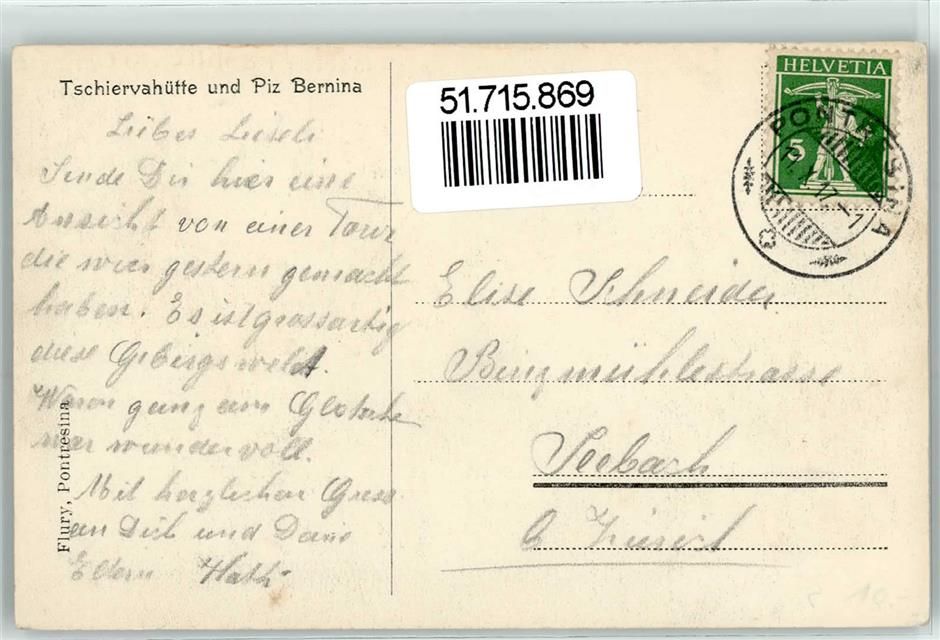 Tschiervahütte und Piz Bernina
Liebes Lieseli
Sende Dir hier eine
Ansicht von einer Tour
die wier gestern gemacht
haben. Es ist grossartig
diese Gebirgswelt.
Waren ganz am Gletscher
war wundervoll.
Mit herzlichen Gruss
an Dich und Deine
Eltern
Flury, Pontresina
51.715.869
HELVETIA
5
PONTRESINA
Elise Schneider
Binzmühlestrasse
Seebach
b Zürich